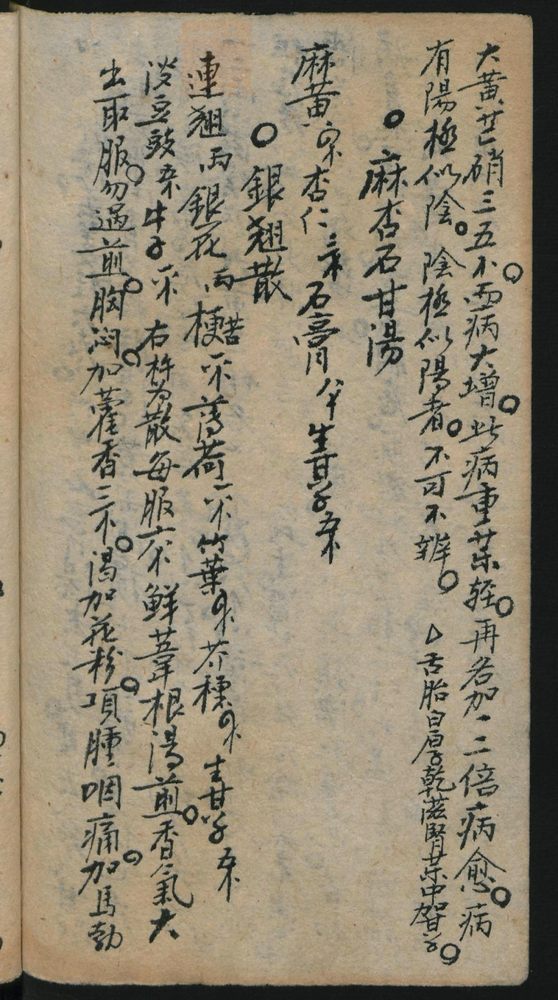 大黃芒硝三五不。而病大增。此病重藥輕。再各加一二倍病愈。病
有陽極似陰。陰極似陽者。不可不辨。△舌胎白厚乾滋腎藥中加
○麻杏石甘湯
麻黃 杏仁 石膏 生甘草
○銀翹散
連翹 銀花 苦梗 薄荷 竹葉 芥穗 生甘草
淡豆豉 牛子 右杵為散每服六 鮮葦根湯煎。香氣大
出取服。勿過煎。胸悶加藿香三 。渴加花粉。項腫咽痛。加馬勃